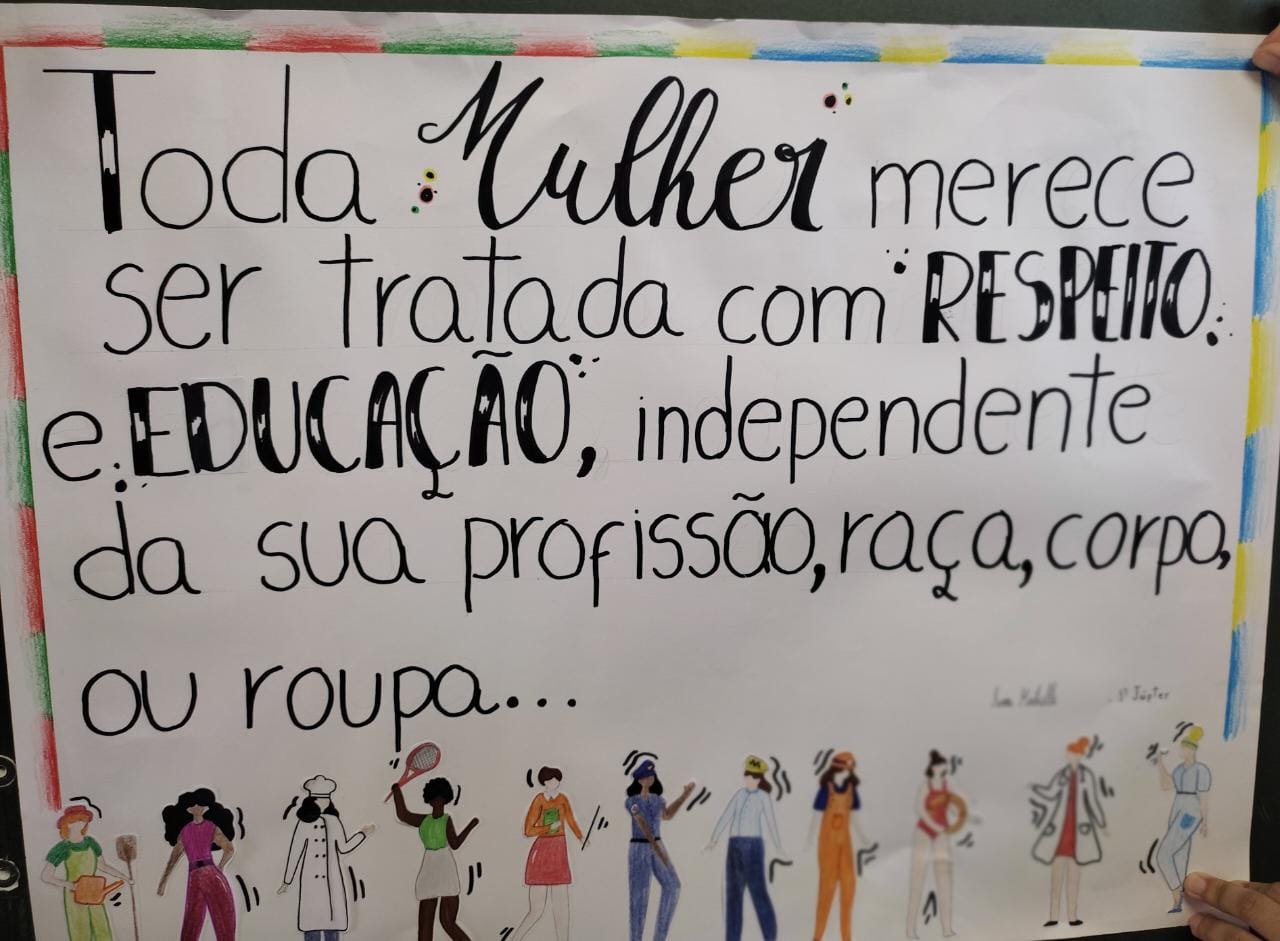 Toda Mulher merece
ser tratada com RESPEITO
e EDUCAÇÃO, independente
da sua profissão, raça, corpo,
ou roupa...
Júpter